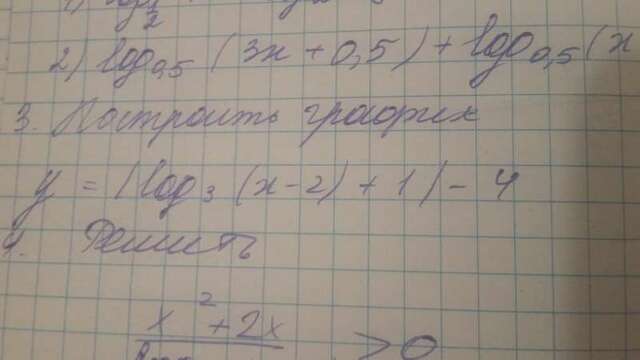 2) log₀,₅ (3x + 0,5) + log₀,₅ (x
3. Построить график
y = |log₃ (x-2) + 1| - 4
4. Решить
x² + 2x
> 0